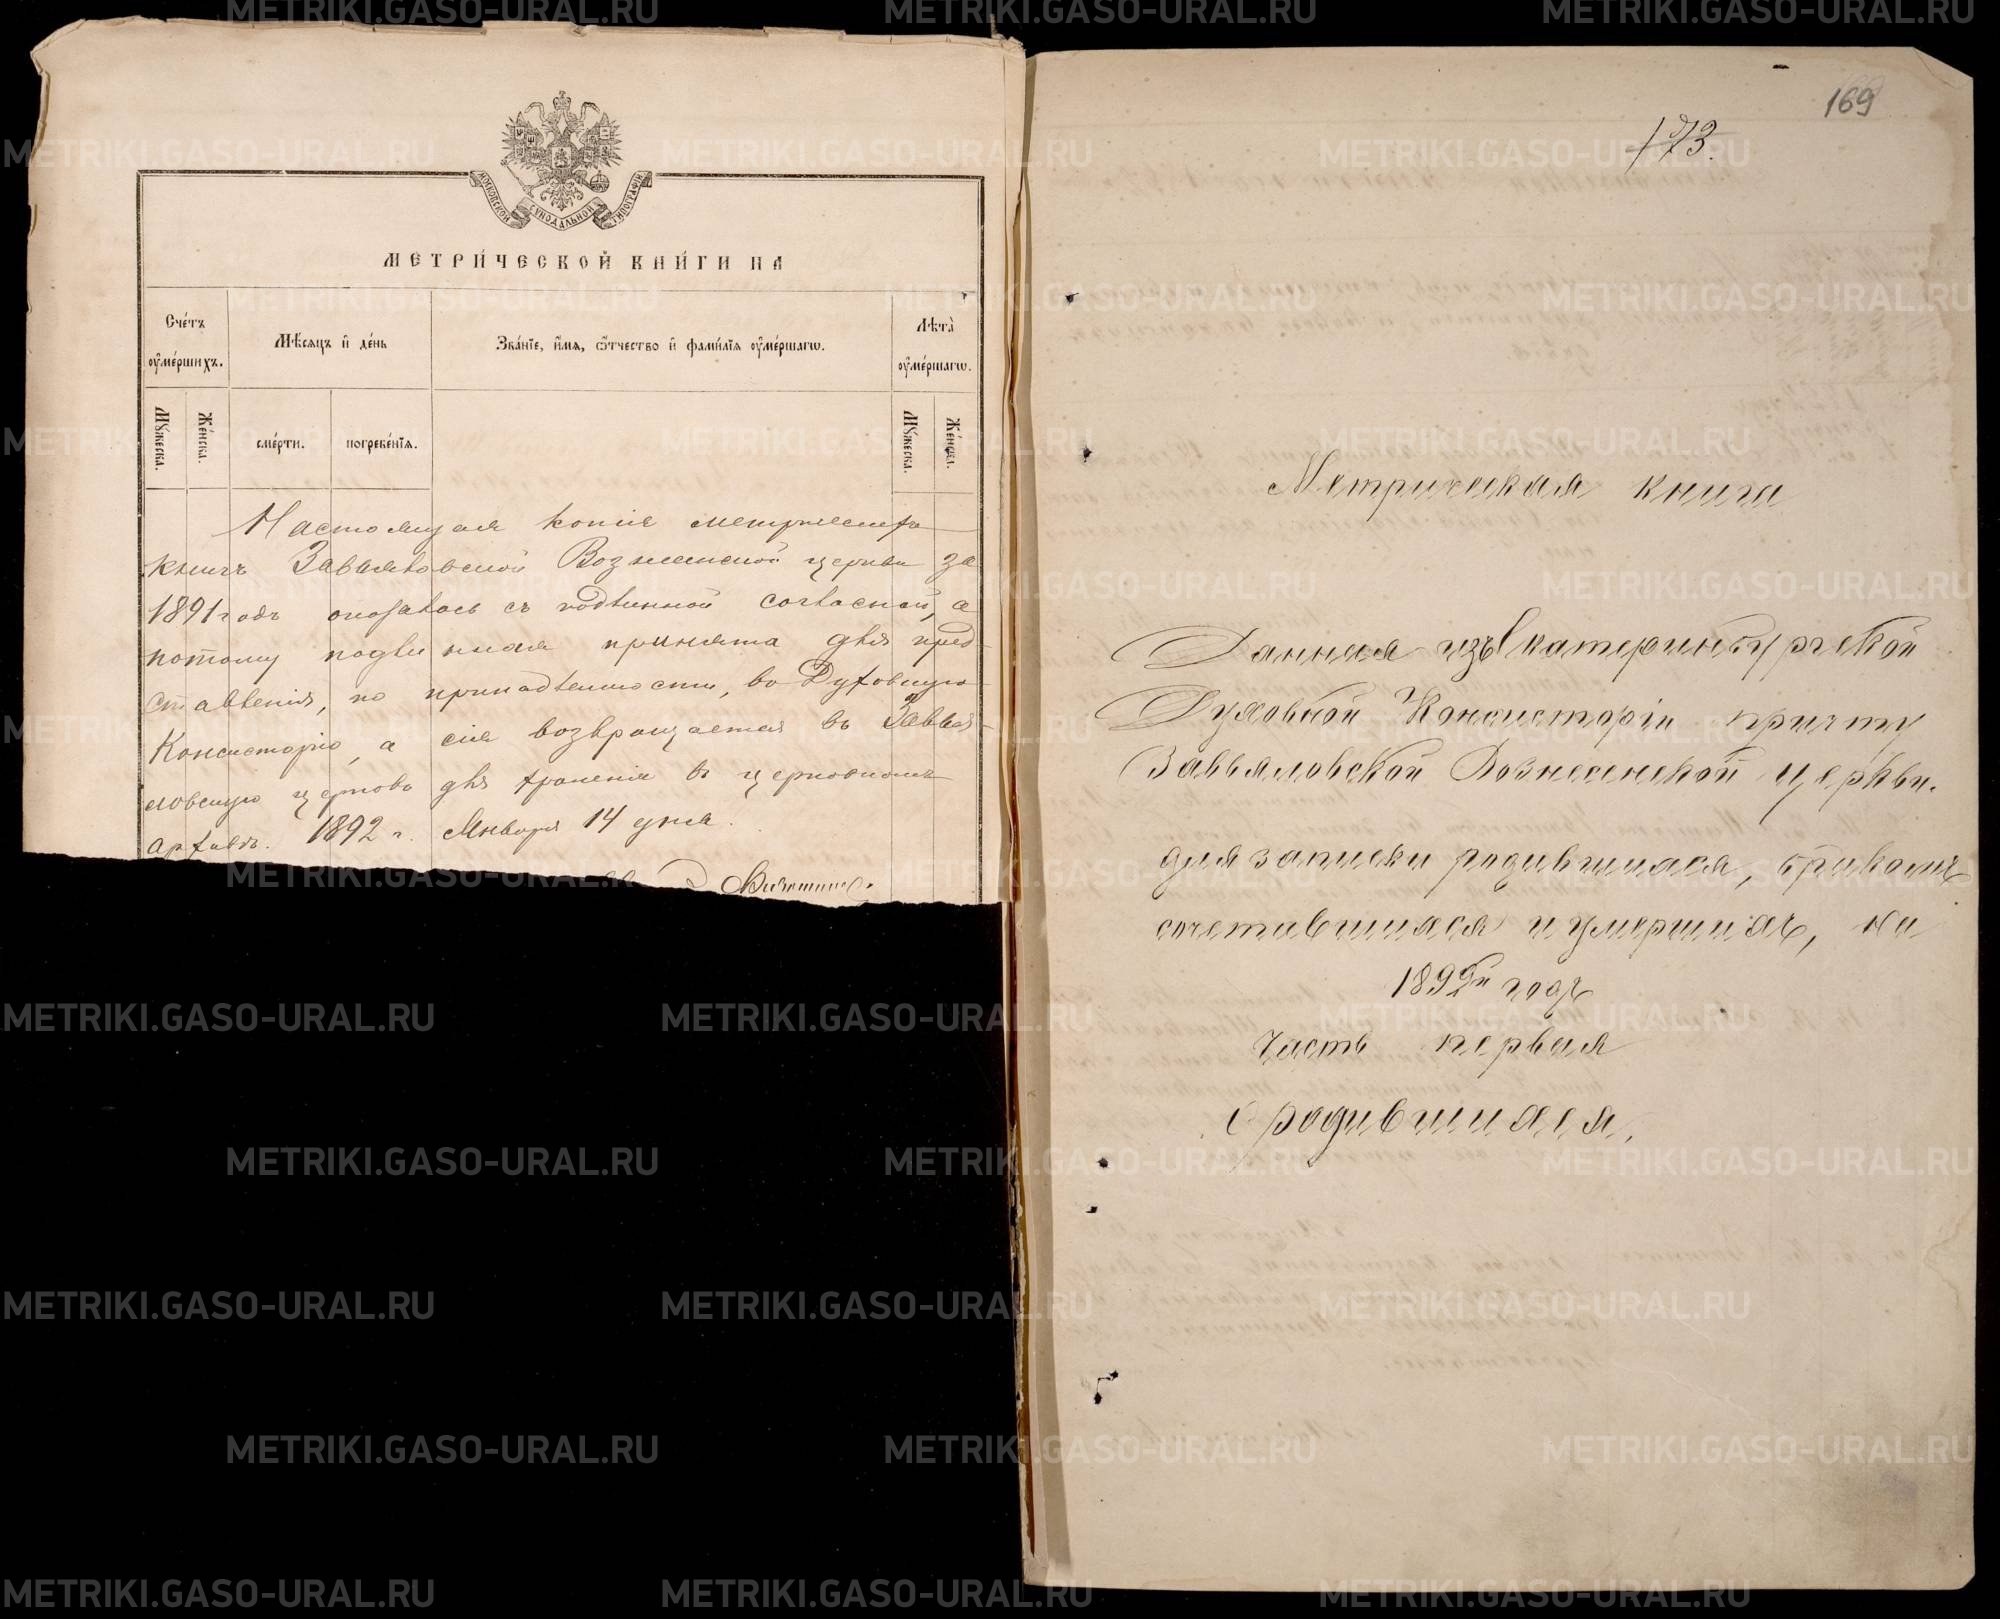 МОСКОВСКОЙ СѴНОДАЛЬНОЙ ТИПОГРАФІИ
МЕТРИ́ЧЕСКОЙ КНИ́ГИ НА
Сче́тъ ᲂу҆ме́ршихъ.
Мѣ́сяцъ и҆ де́нь
Зва́нїе, и҆́мя, ѻ҆́тчество и҆ фами́лїя ᲂу҆ме́ршагѡ.
Лѣ́та ᲂу҆ме́ршагѡ.
Му́жеска.
Же́нска.
сме́рти.
погребе́нїя.
Му́жеска.
Же́нска.
Настоящая копія метрическихъ
книгъ Завьяловской Вознесенской церкви за
1891 годъ оказалась съ подлинной согласной, а
потому подлинная принята для пред-
ставленія, по принадлежности, во Духовную
Консисторію, а сія возвращается въ Завья-
ловскую церковь для храненія въ церковномъ
архивѣ. 1892 г. Января 14 дня.
169
173.
Метрическая книга
Данная изъ Екатеринбургской
Духовной Консисторіи причту
Завьяловской Вознесенской церкви.
для записки родившихся, бракомъ
сочетавшихся и умершихъ, на
1892й годъ
Часть первая
О родившихся.
METRIKI.GASO-URAL.RU